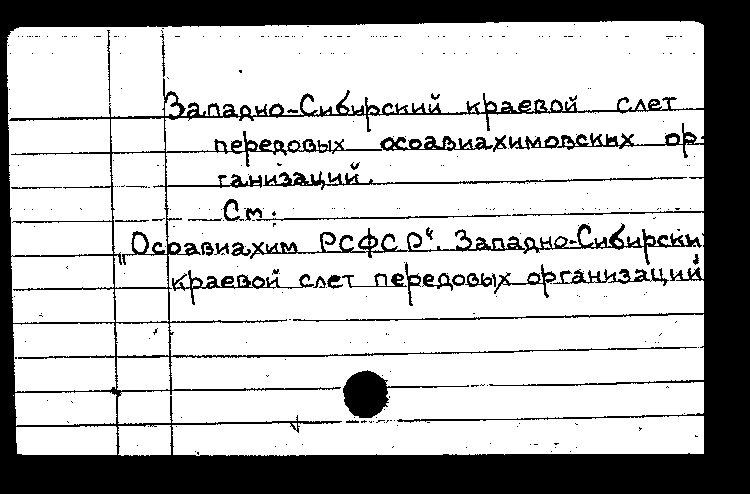 Западно-Сибирский краевой слет
передовых осоавиахимовских ор-
ганизаций.
См.
„Осоавиахим РСФСР“. Западно-Сибирски
краевой слет передовых организаций